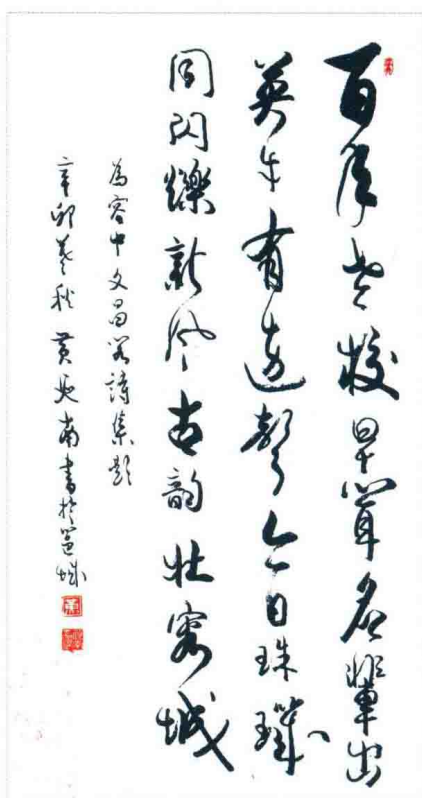 百年老校早聞名輩出
英才有遠聲今日珠璣
同閃爍新風古韻壯容城
為容中文昌閣詩集題
辛卯秋黄延南書於邕城